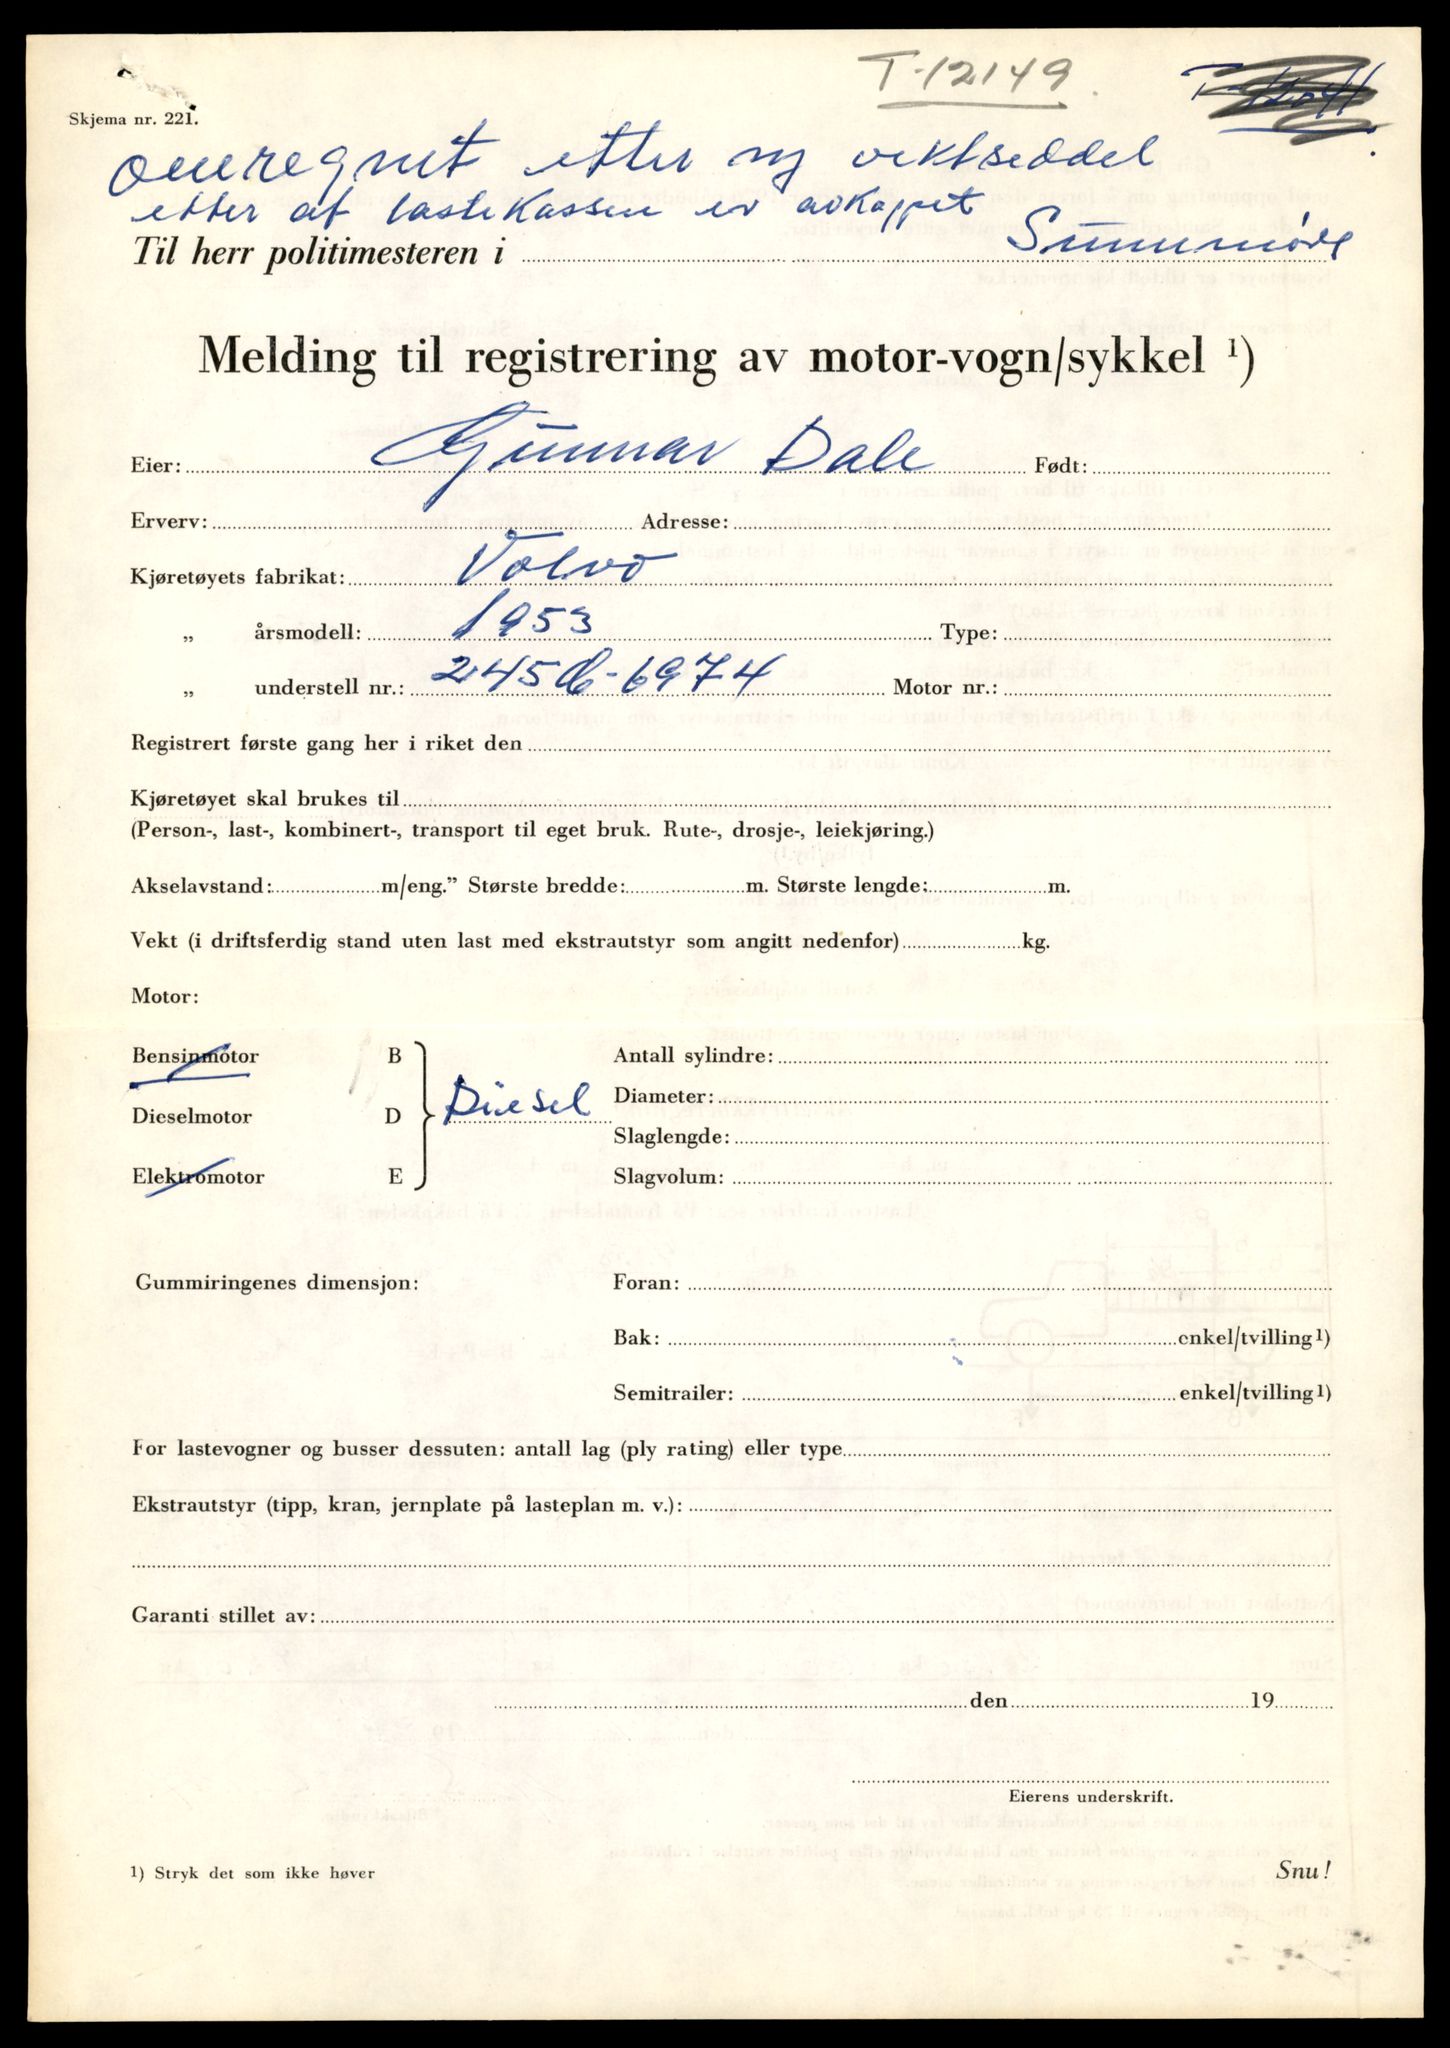 T-12149
Skjema nr. 221.
omregnet etter ny vektseddel
etter at lastekassen er avkappet
Til herr politimesteren i Sunnmøre
Melding til registrering av motor-vogn/sykkel ¹)
Eier: Gunnar Dale Født:
Erverv: Adresse:
Kjøretøyets fabrikat: Volvo
„ årsmodell: 1953 Type:
„ understell nr.: 2456-6974 Motor nr.:
Registrert første gang her i riket den
Kjøretøyet skal brukes til
(Person-, last-, kombinert-, transport til eget bruk. Rute-, drosje-, leiekjøring.)
Akselavstand: m/eng.” Største bredde: m. Største lengde: m.
Vekt (i driftsferdig stand uten last med ekstrautstyr som angitt nedenfor) kg.
Motor:
Bensinmotor B Antall sylindre:
Diameter:
Dieselmotor D Diesel
Slaglengde:
Elektromotor E Slagvolum:
Gummiringenes dimensjon: Foran:
Bak: enkel/tvilling¹)
Semitrailer: enkel/tvilling¹)
For lastevogner og busser dessuten: antall lag (ply rating) eller type
Ekstrautstyr (tipp, kran, jernplate på lasteplan m. v.):
Garanti stillet av:
den 19
Eierens underskrift.
¹) Stryk det som ikke høver Snu!